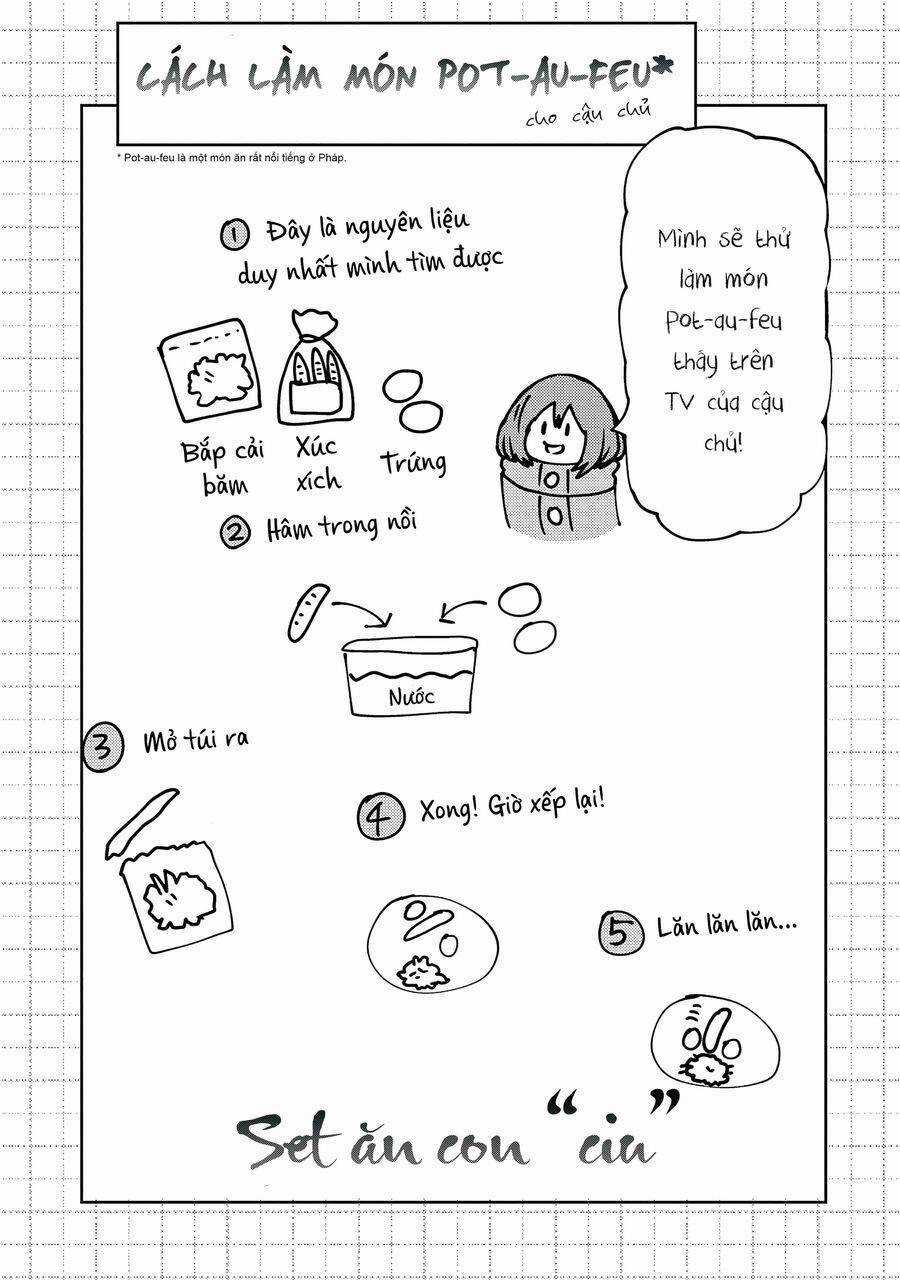 CÁCH LÀM MÓN POT-AU-FEU*
cho cậu chủ
* Pot-au-feu là một món ăn rất nổi tiếng ở Pháp.
Mình sẽ thử
làm món
Pot-au-feu
thấy trên
TV của cậu
chủ!
1 Đây là nguyên liệu
duy nhất mình tìm được
Bắp cải
băm
Xúc
xích
Trứng
2 Hâm trong nồi
Nước
3 Mở túi ra
4 Xong! Giờ xếp lại!
5 Lăn lăn lăn...
Set ăn con “ciu”